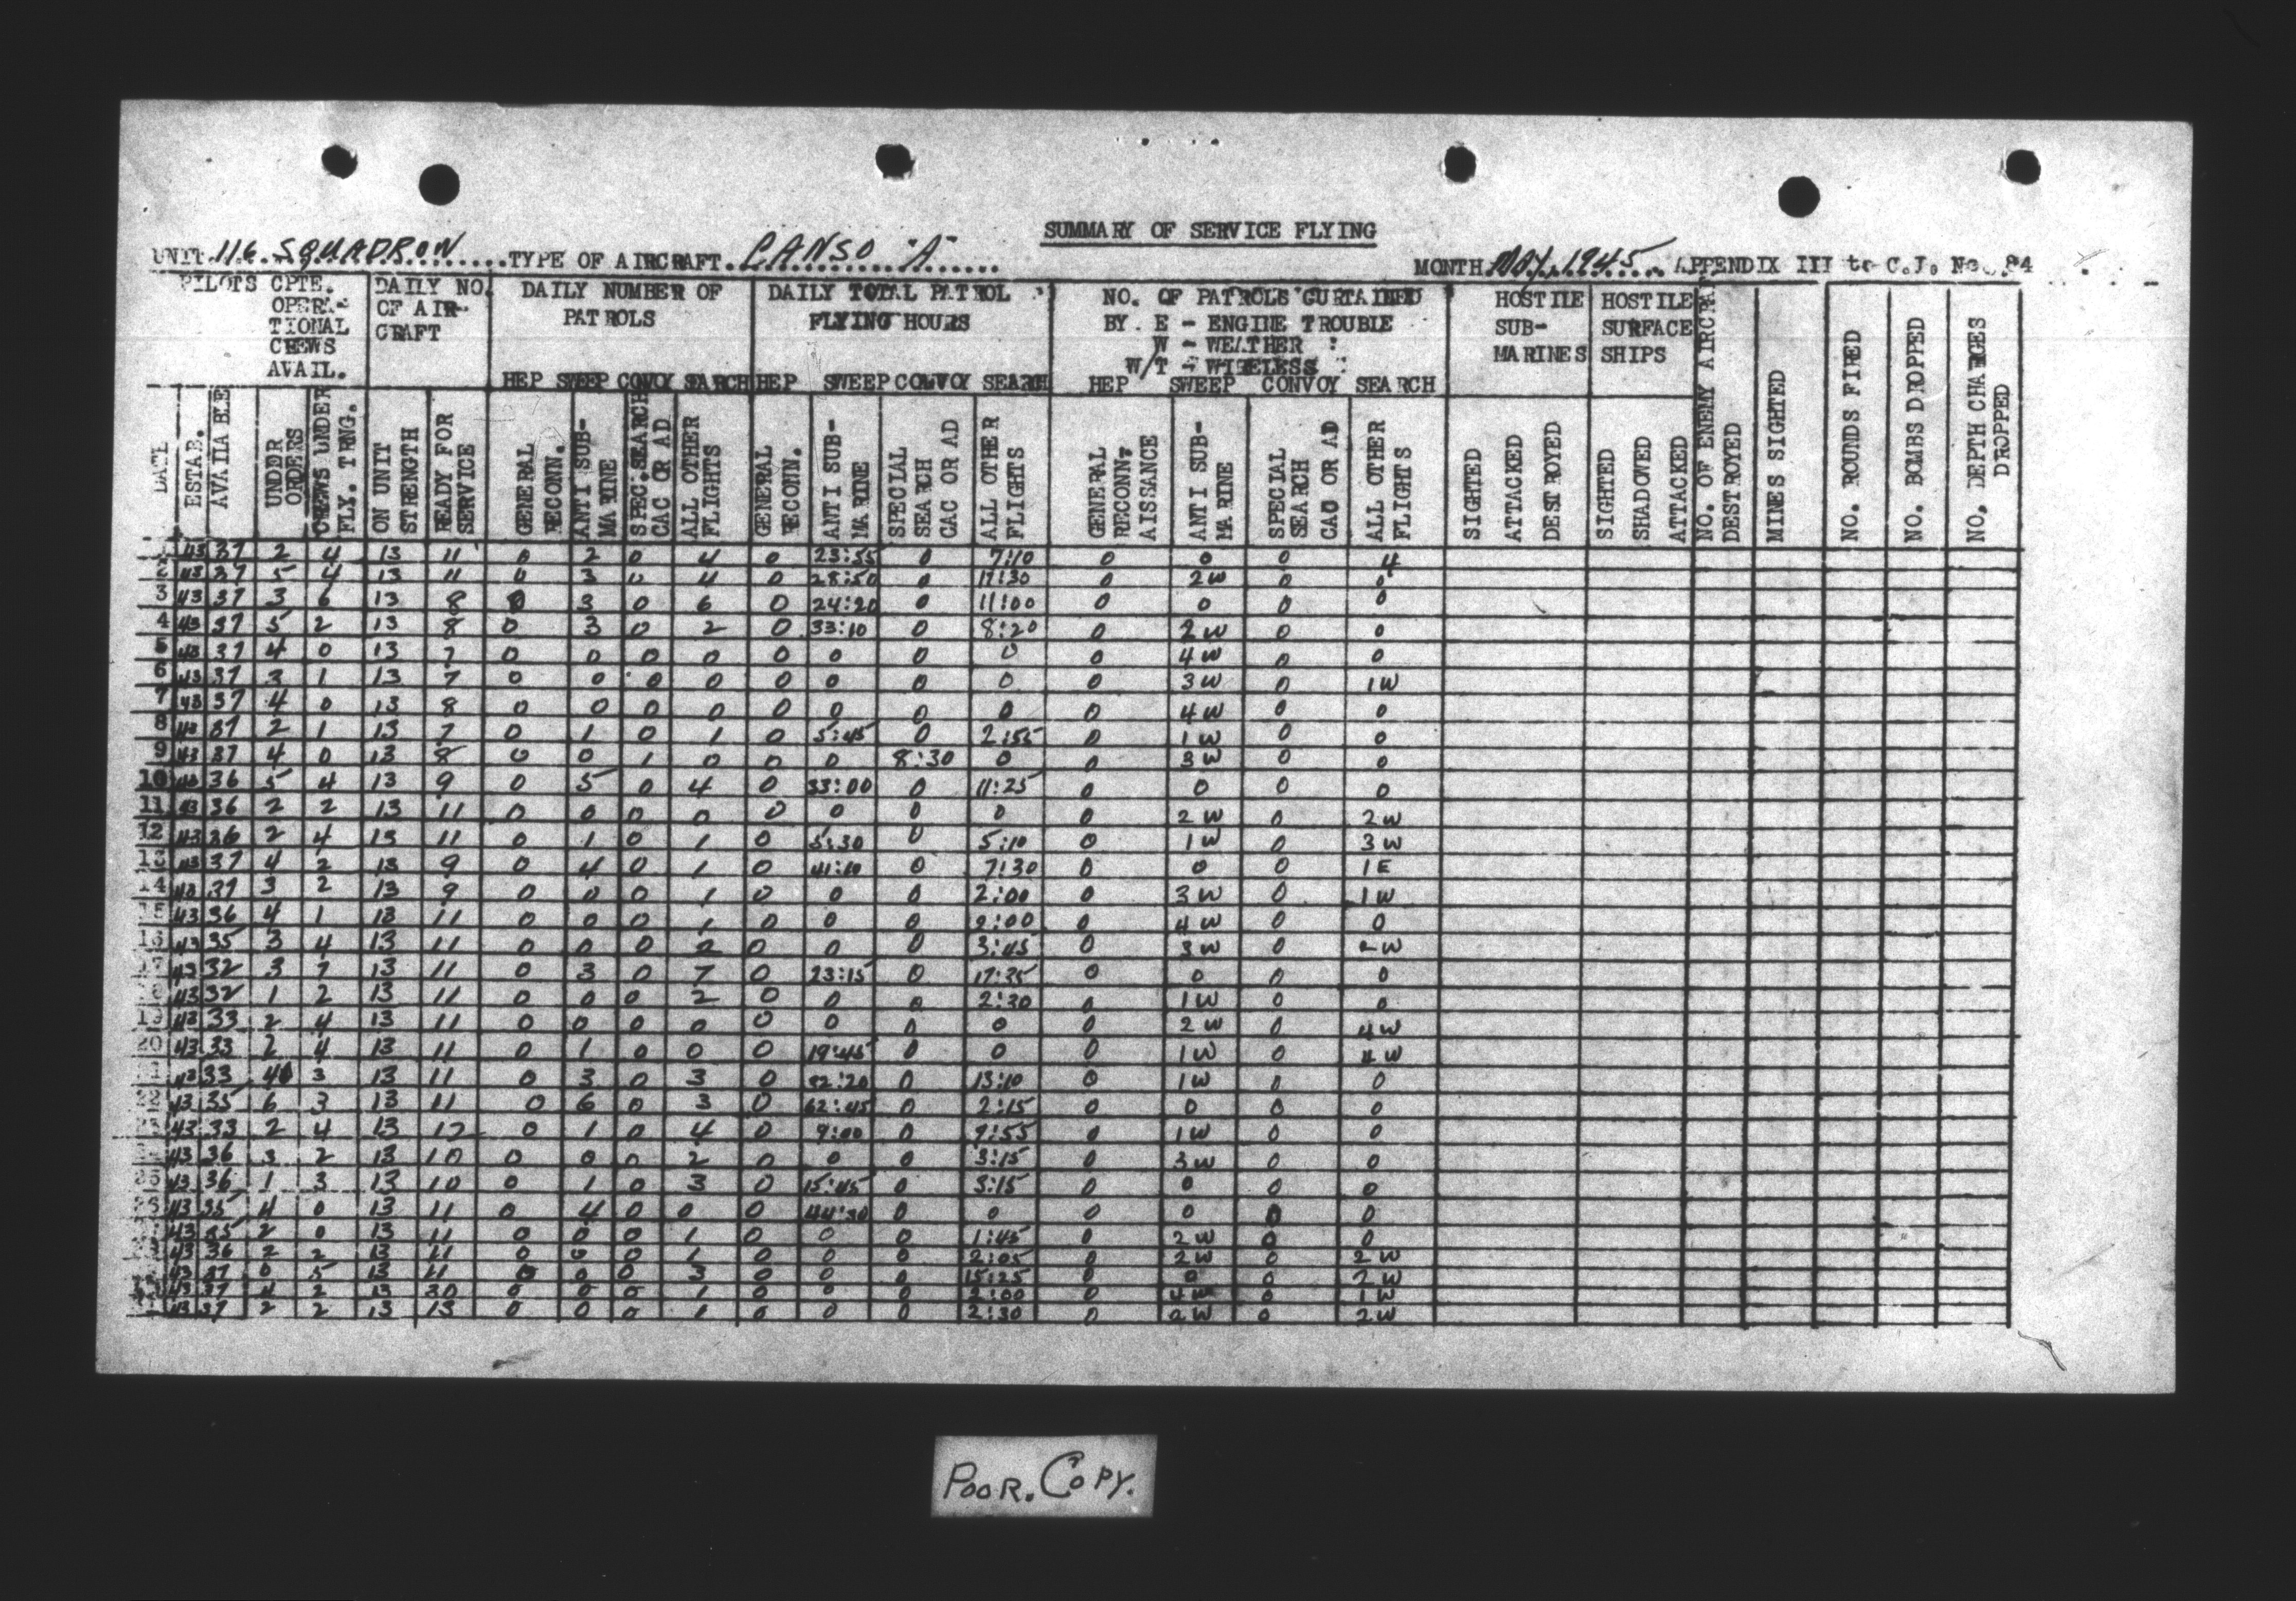 SUMMARY OF SERVICE FLYING
UNIT. 116 SQUADRON TYPE OF AIRCRAFT. CANSO "A" MONTH MAY, 1945 APPENDIX III to C.J. No. 84
PILOTS CPTE. OPERA-TIONAL CREWS AVAIL. DAILY NO. OF AIR-CRAFT DAILY NUMBER OF PATROLS DAILY TOTAL PATROL FLYING HOURS NO. OF PATROLS CURTAILED BY. E - ENGINE TROUBLE W - WEATHER W/T - WIRELESS HOSTILE SUB-MARINES HOSTILE SURFACE SHIPS
HEP SWEEP CONVOY SEARCH HEP SWEEP CONVOY SEARCH HEP SWEEP CONVOY SEARCH
DATE ESTAB. AVAILABLE UNDER ORDERS CREWS UNDER FLY. TRNG. ON UNIT STRENGTH READY FOR SERVICE GENERAL RECONN. ANTI SUB-MARINE SPEC. SEARCH CAC OR AD ALL OTHER FLIGHTS GENERAL RECONN. ANTI SUB-MARINE SPECIAL SEARCH CAC OR AD ALL OTHER FLIGHTS GENERAL RECONN-AISSANCE ANTI SUB-MARINE SPECIAL SEARCH CAC OR AD ALL OTHER FLIGHTS SIGHTED ATTACKED DESTROYED SIGHTED SHADOWED ATTACKED NO. OF ENEMY AIRCRAFT DESTROYED MINES SIGHTED NO. ROUNDS FIRED NO. BOMBS DROPPED NO. DEPTH CHARGES DROPPED
43 37 2 4 13 11 0 2 0 4 0 23:55 0 7:10 0 0 0 4
2 43 37 5 4 13 11 0 3 0 4 0 28:50 0 17:30 0 2W 0 0
3 43 37 3 6 13 8 0 3 0 6 0 24:20 0 11:00 0 0 0 0
4 43 37 5 2 13 8 0 3 0 2 0 33:10 0 8:20 0 2W 0 0
5 43 37 4 0 13 7 0 0 0 0 0 0 0 0 0 4W 0 0
6 43 37 3 1 13 7 0 0 0 0 0 0 0 0 0 3W 0 1W
7 43 37 4 0 13 8 0 0 0 0 0 0 0 0 0 4W 0 0
8 43 37 2 1 13 7 0 1 0 1 0 5:45 0 2:55 0 1W 0 0
9 43 37 4 0 13 8 0 0 1 0 0 0 8:30 0 0 3W 0 0
10 43 36 5 4 13 9 0 5 0 4 0 33:00 0 11:25 0 0 0 0
11 43 36 2 2 13 11 0 0 0 0 0 0 0 0 0 2W 0 2W
12 43 36 2 4 13 11 0 1 0 1 0 5:30 0 5:10 0 1W 0 3W
13 43 37 4 2 13 9 0 4 0 1 0 41:10 0 7:30 0 0 0 1E
14 43 37 3 2 13 9 0 0 0 1 0 0 0 2:00 0 3W 0 1W
15 43 36 4 1 13 11 0 0 0 1 0 0 0 2:00 0 4W 0 0
16 43 35 3 4 13 11 0 0 0 2 0 0 0 3:45 0 3W 0 2W
17 43 32 3 7 13 11 0 3 0 7 0 23:15 0 17:35 0 0 0 0
18 43 32 1 2 13 11 0 0 0 2 0 0 0 2:30 0 1W 0 0
19 43 33 2 4 13 11 0 0 0 0 0 0 0 0 0 2W 0 4W
20 43 33 2 4 13 11 0 1 0 0 0 19:45 0 0 0 1W 0 4W
21 43 33 4 3 13 11 0 3 0 3 0 32:20 0 13:10 0 1W 0 0
22 43 35 6 3 13 11 0 6 0 3 0 62:45 0 2:15 0 0 0 0
23 43 33 2 4 13 12 0 1 0 4 0 9:00 0 9:55 0 1W 0 0
24 43 36 3 2 13 10 0 0 0 2 0 0 0 3:15 0 3W 0 0
25 43 36 1 3 13 10 0 1 0 3 0 15:45 0 3:15 0 0 0 0
26 43 35 4 0 13 11 0 4 0 0 0 44:30 0 0 0 0 0 0
43 35 2 0 13 11 0 0 0 1 0 0 0 1:45 0 2W 0 0
43 36 2 2 13 11 0 0 0 1 0 0 0 2:05 0 2W 0 2W
43 37 0 5 13 11 0 0 0 3 0 0 0 15:25 0 0 0 2W
43 37 4 2 13 0 0 0 1 0 0 0 2:00 0 4W 0 1W
43 37 2 2 13 13 0 0 0 1 0 0 0 2:30 0 2W 0 2W
POOR. COPY.